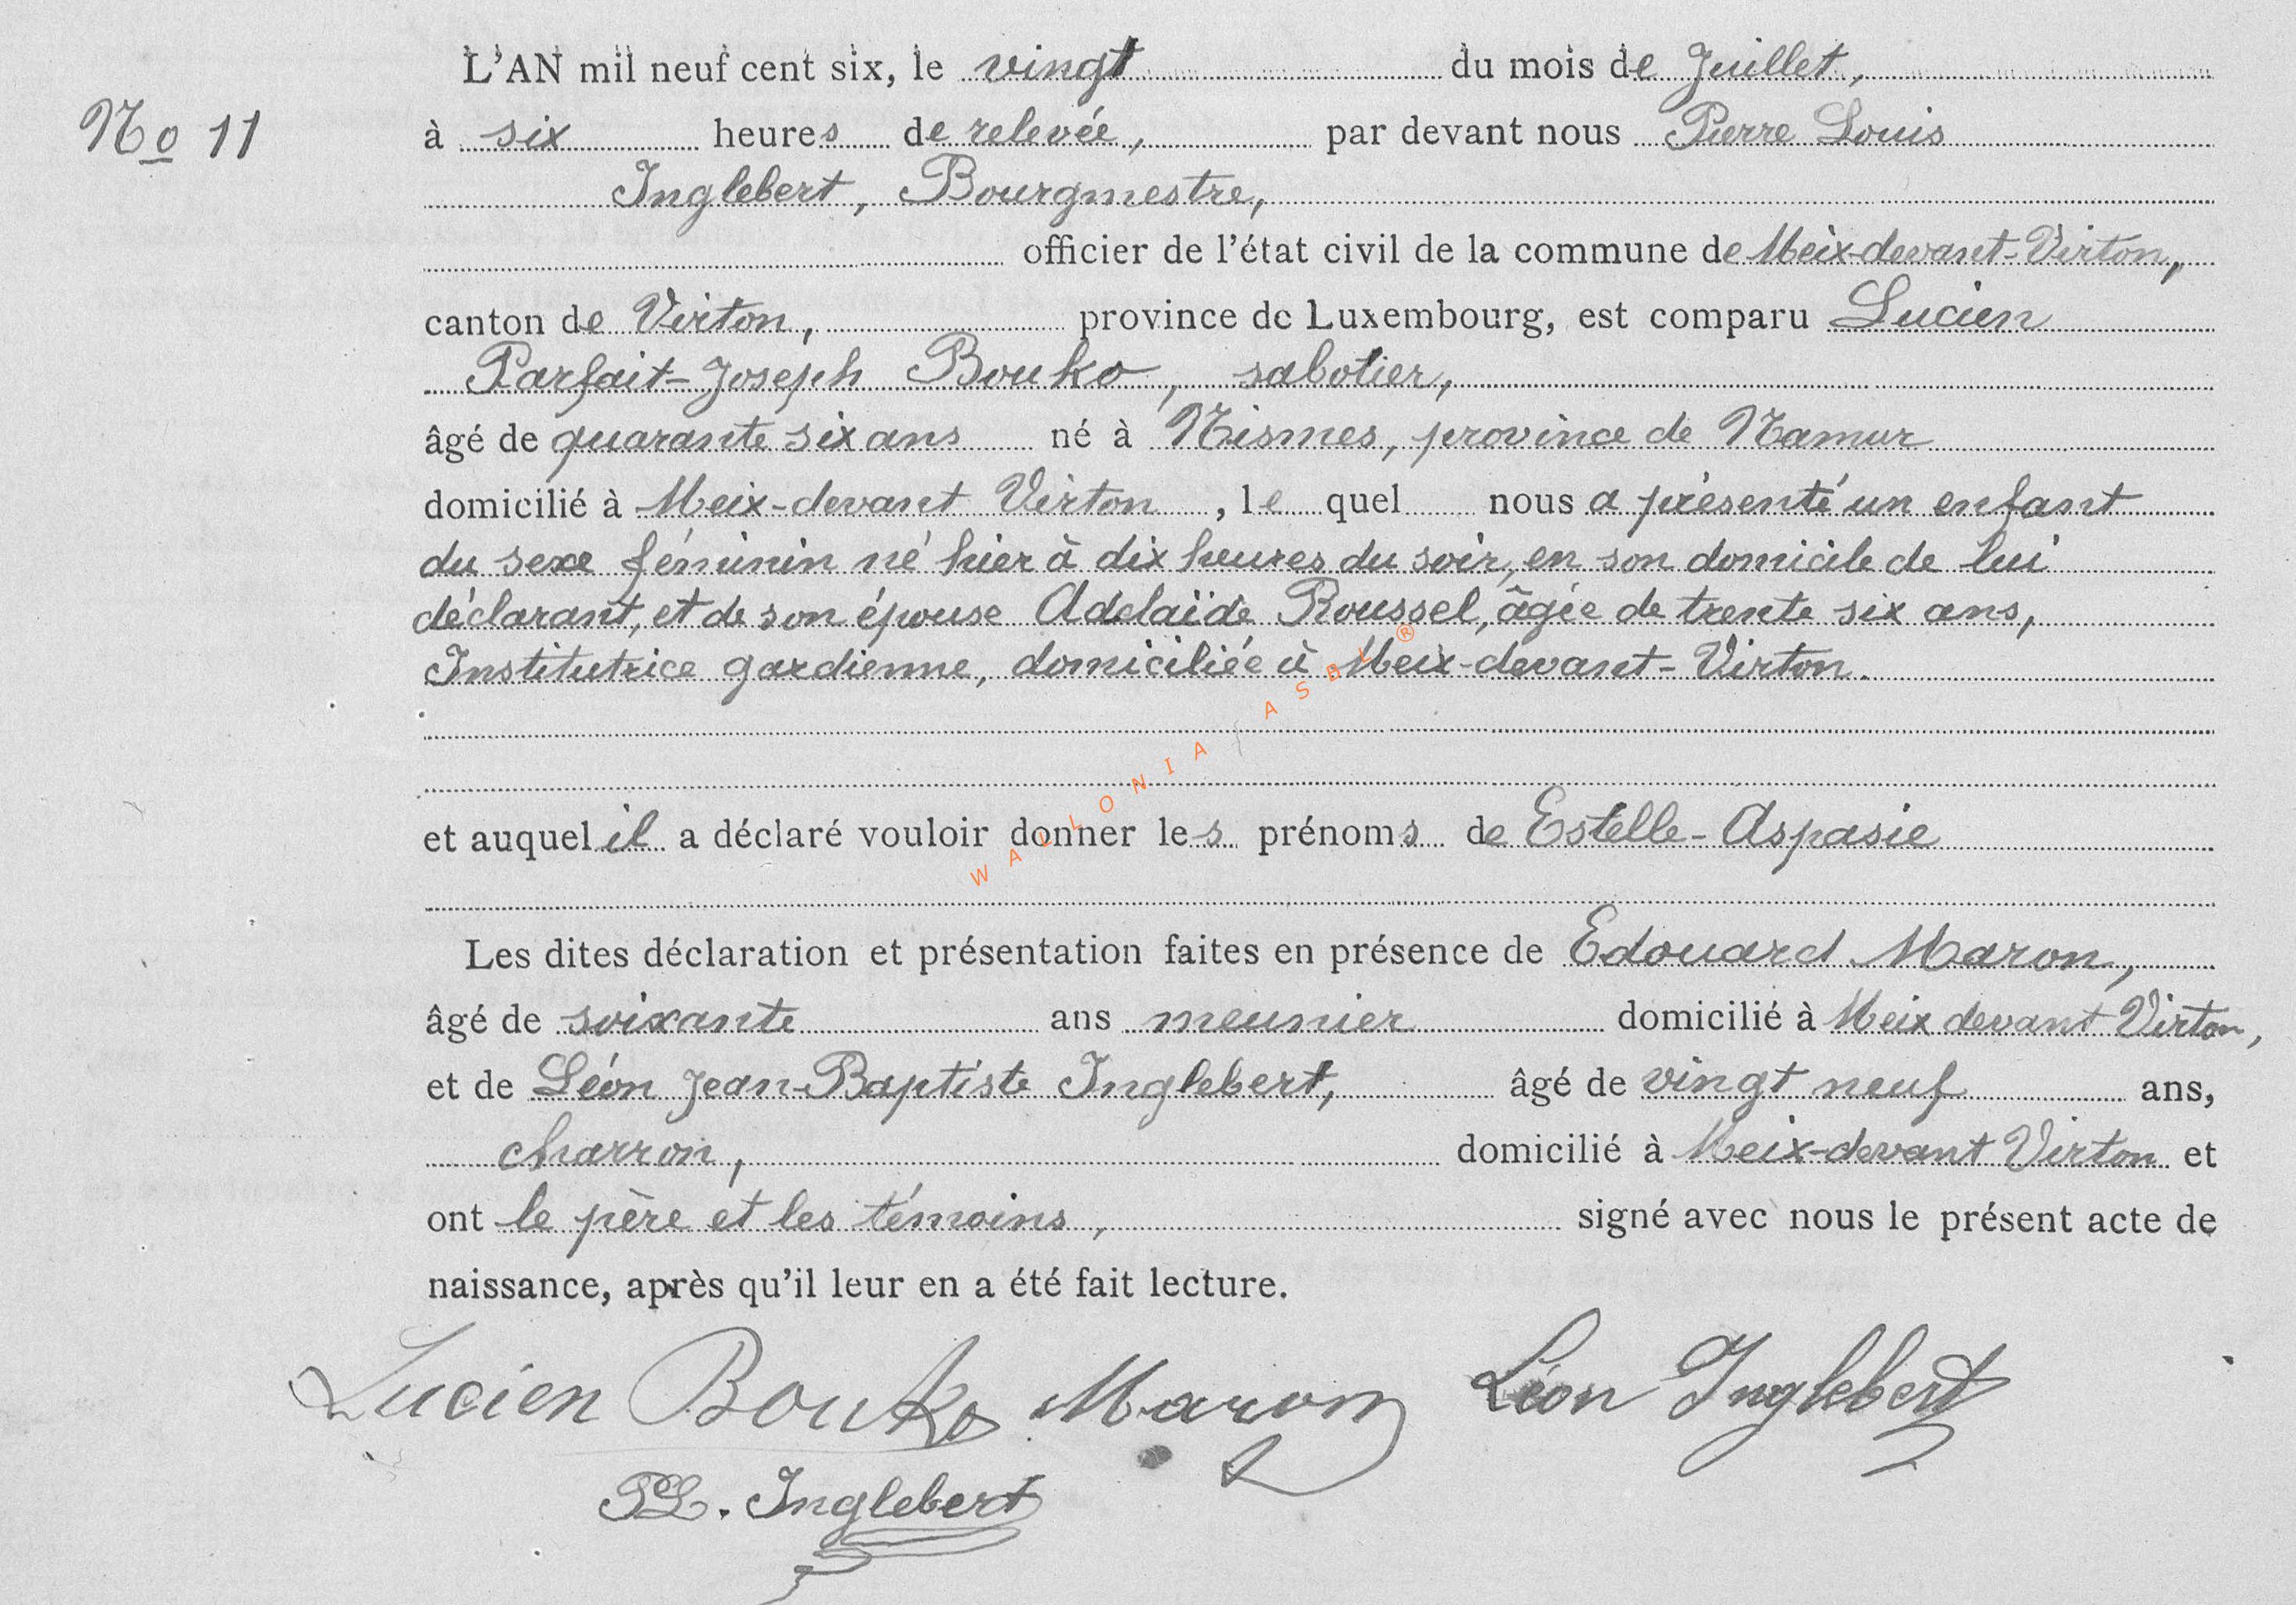 L'AN mil neuf cent six, le vingt du mois de Juillet,
No 11
à six heures de relevée, par devant nous Pierre Louis
Inglebert, Bourgmestre,
officier de l'état civil de la commune de Meix-devant-Virton,
canton de Virton, province de Luxembourg, est comparu Lucien
Parfait-Joseph Bouko, sabotier,
âgé de quarante six ans né à Nismes, province de Namur
domicilié à Meix-devant Virton, le quel nous a présenté un enfant
du sexe féminin né hier à dix heures du soir, en son domicile de lui
déclarant, et de son épouse Adelaïde Roussel, âgée de trente six ans,
Institutrice gardienne, domiciliée à Meix-devant-Virton.
WALLONIA ASBL®
et auquel il a déclaré vouloir donner les prénoms de Estelle-Aspasie
Les dites déclaration et présentation faites en présence de Edouard Maron,
âgé de soixante ans meunier domicilié à Meix devant Virton,
et de Léon Jean-Baptiste Inglebert, âgé de vingt neuf ans,
charron, domicilié à Meix-devant Virton et
ont le père et les témoins, signé avec nous le présent acte de
naissance, après qu'il leur en a été fait lecture.
Lucien Bouko Maron Léon Inglebert
PL. Inglebert